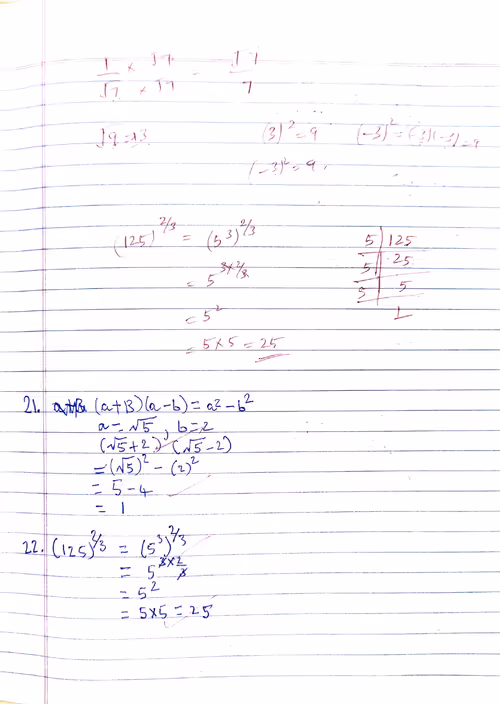 1/√7 × √7/√7 = √7/7
√9 = ±3 (3)² = 9 (-3)² = (-3)(-3) = 9
(-3)² = 9.
(125)^2/3 = (5³)^2/3
= 5^3×2/3
= 5²
= 5×5 = 25
5 | 125
5 | 25
5 | 5
1
21. (a+B)(a-b) = a² - b²
a = √5, b = 2
(√5+2) (√5-2)
= (√5)² - (2)²
= 5 - 4
= 1
22. (125)^2/3 = (5³)^2/3
= 5^3×2/3
= 5²
= 5×5 = 25